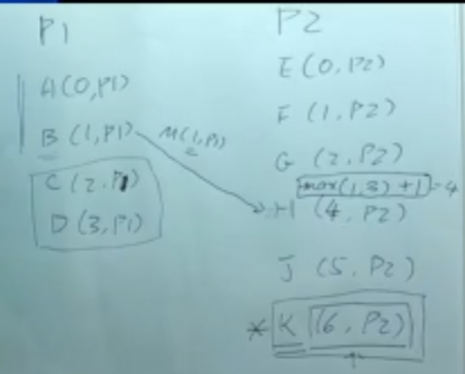 P1
A(0,P1)
B (1,P1)
M(1,P1)
C (2,P1)
D (3,P1)
P2
E (0, P2)
F (1, P2)
G (2, P2)
max(1,3)+1=4
H (4, P2)
J (5, P2)
* K (6, P2)